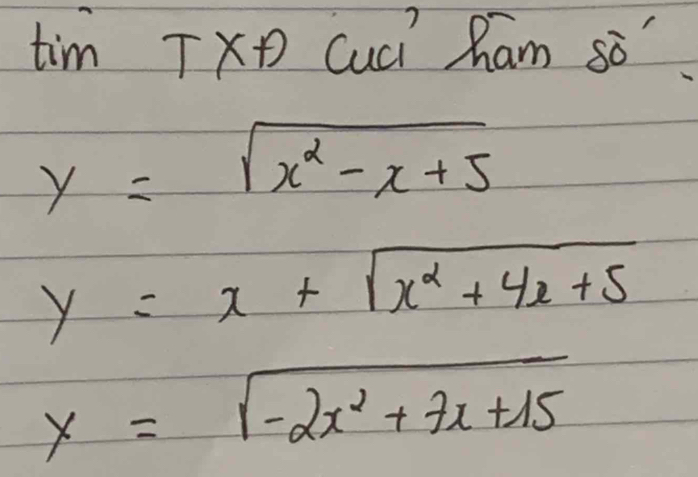 tìm TXĐ của hàm số
y = √(x² - x + 5)
y = x + √(x² + 4x + 5)
y = √(-2x² + 7x + 15)